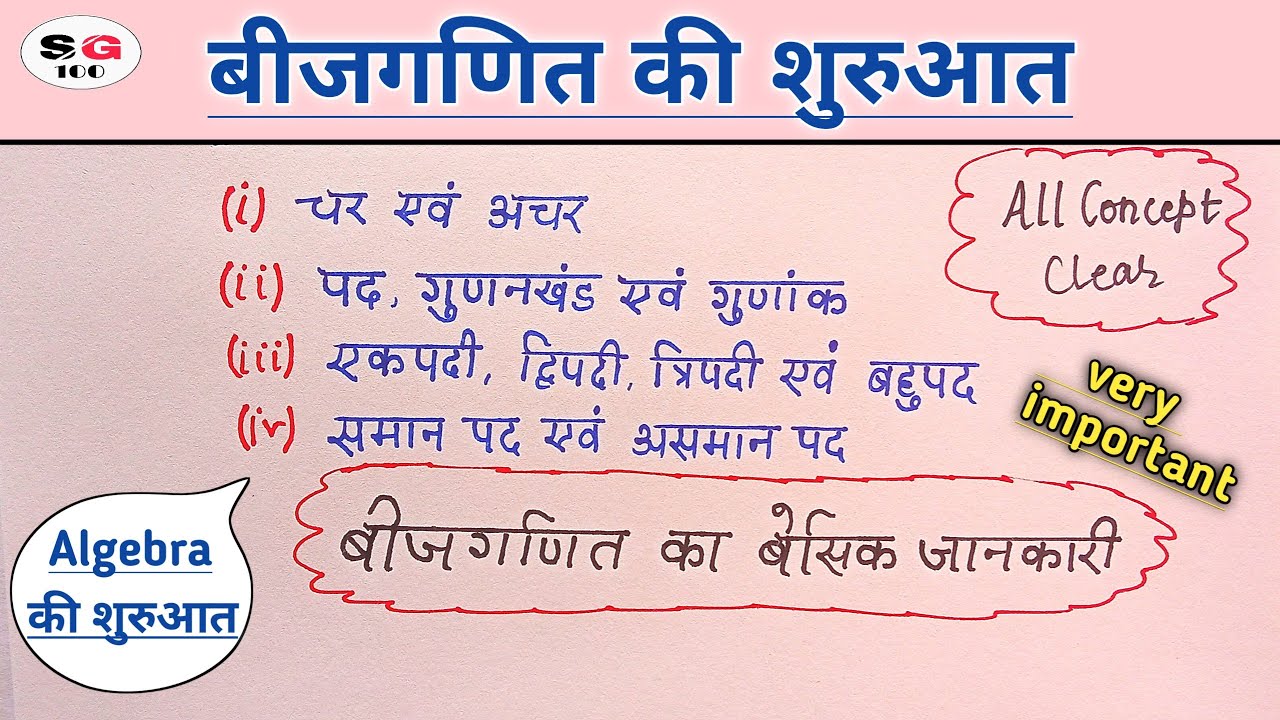 SG
100
बीजगणित की शुरुआत
(i) चर एवं अचर
(ii) पद, गुणनखंड एवं गुणांक
(iii) एकपदी, द्विपदी, त्रिपदी एवं बहुपद
(iv) समान पद एवं असमान पद
All Concept
Clear
very
important
Algebra
की शुरुआत
बीजगणित का बेसिक जानकारी